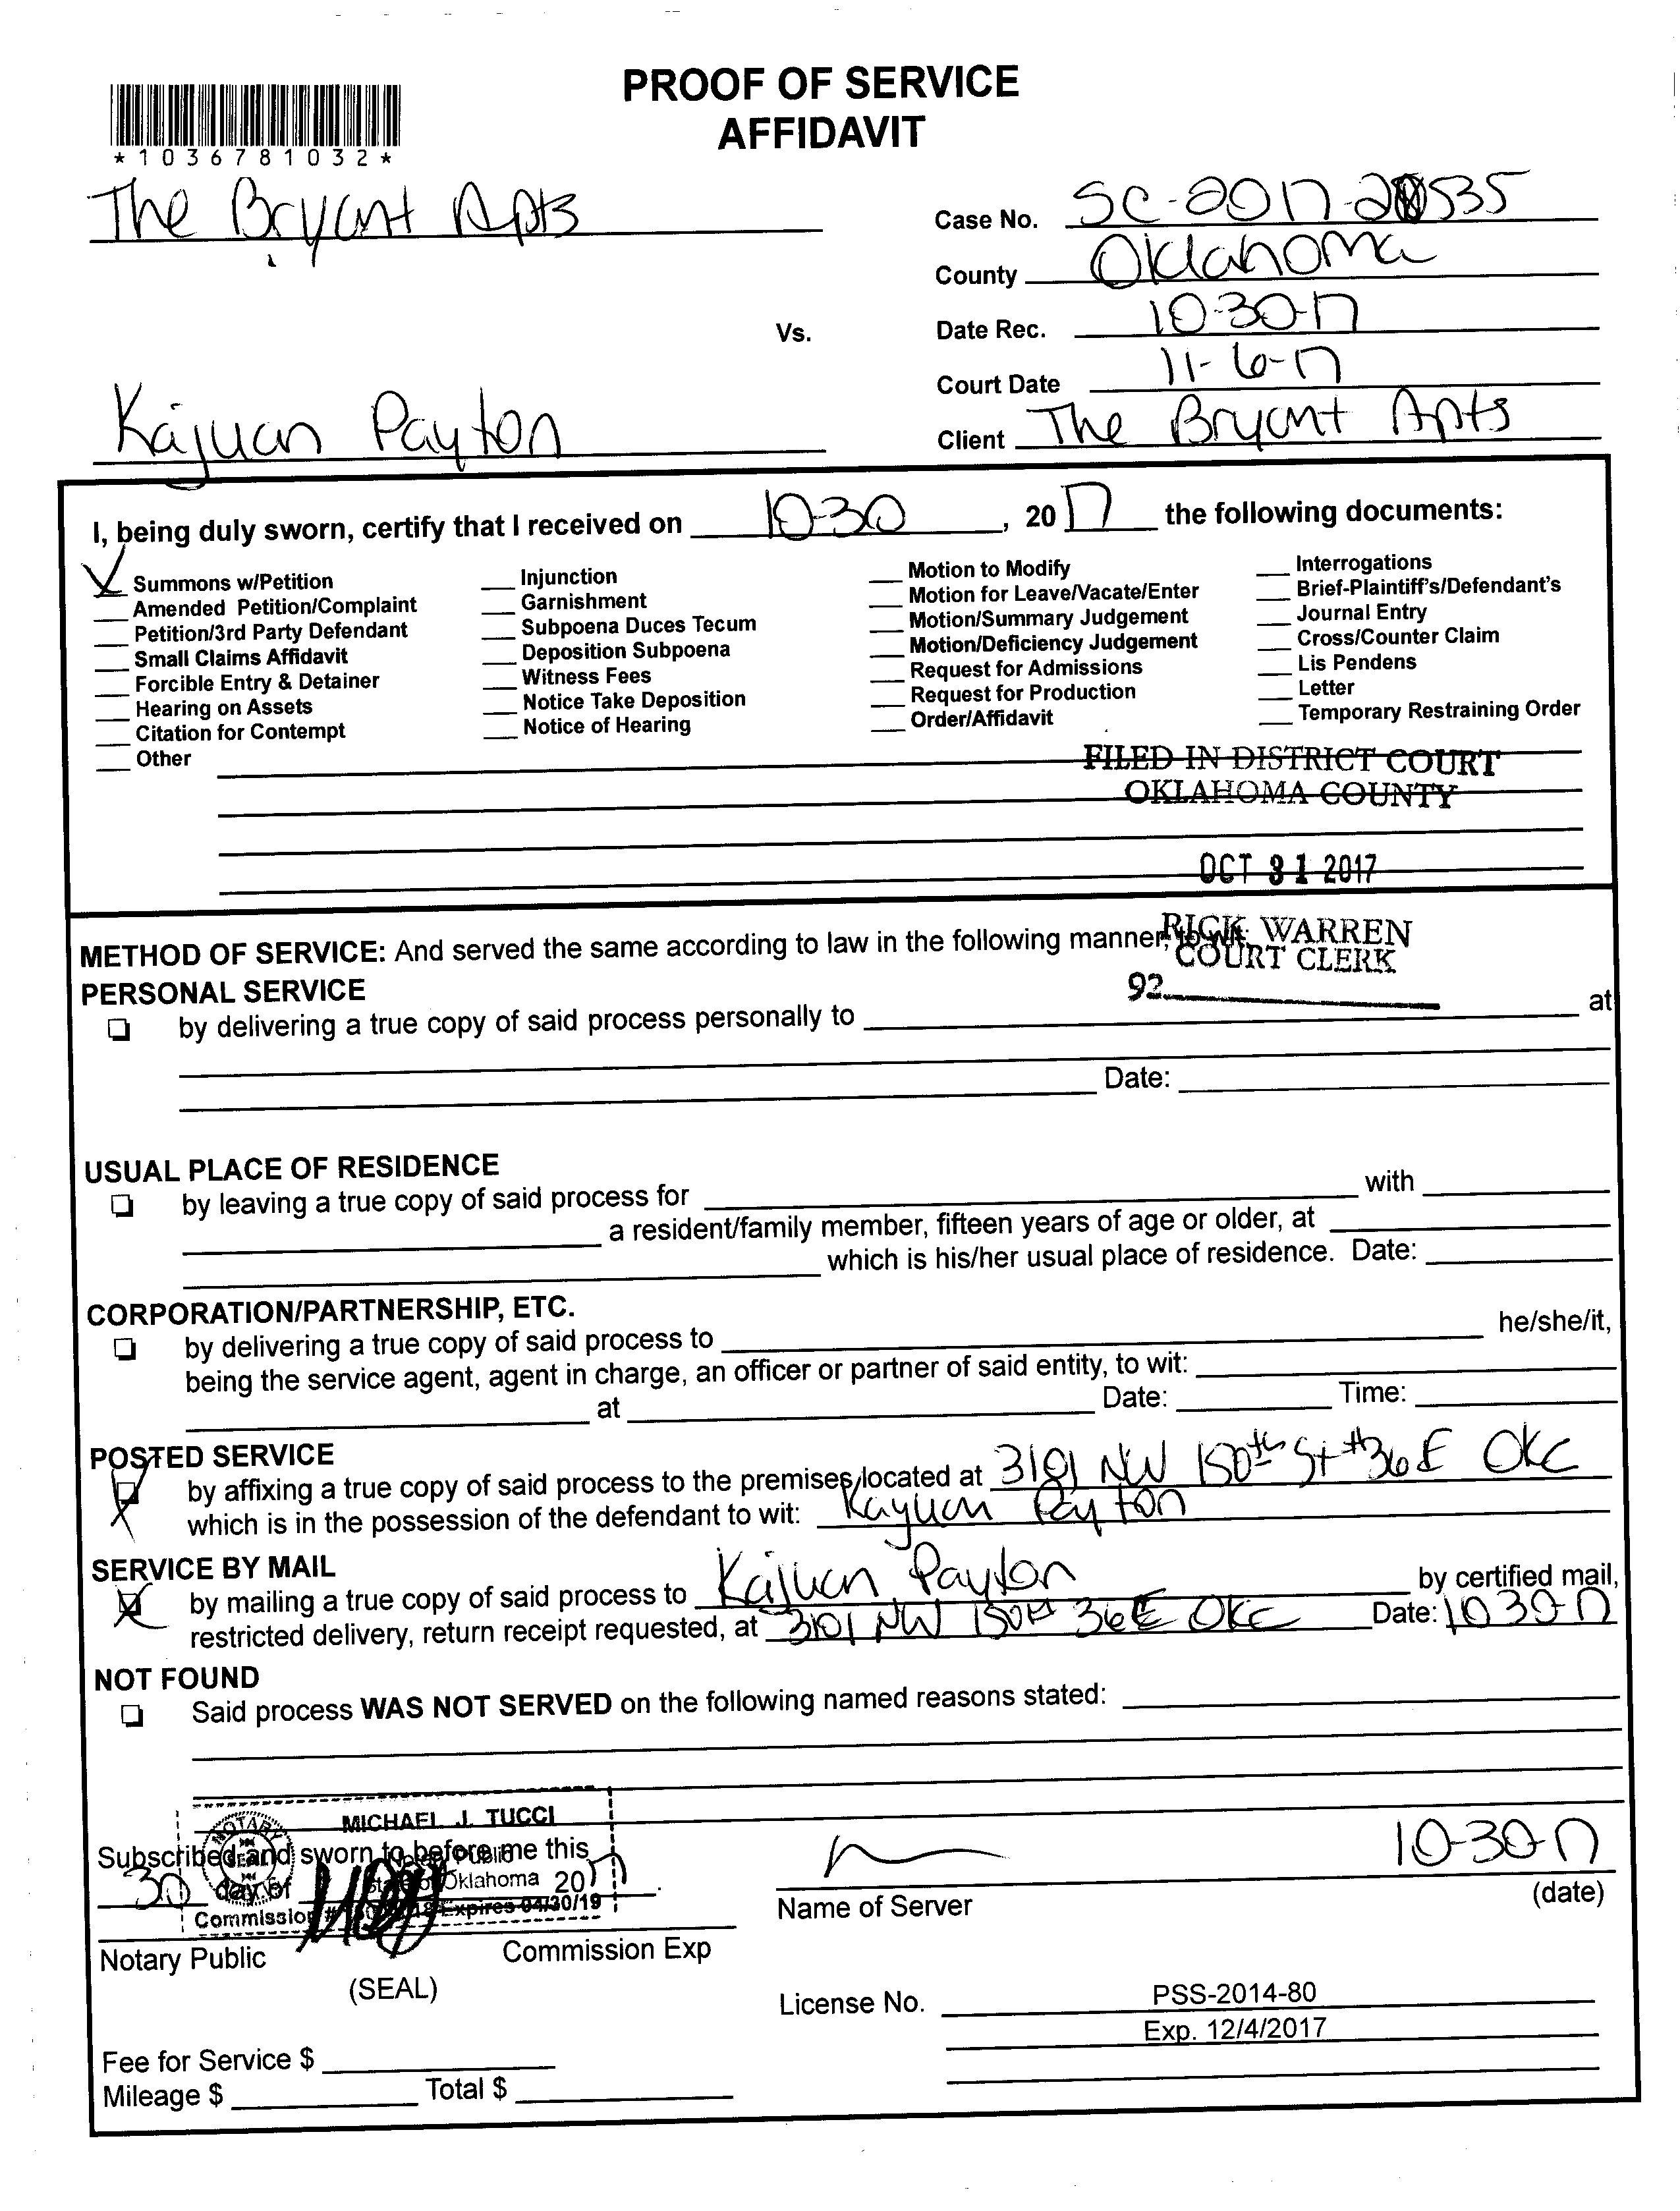 PROOF OF SERVICE
AFFIDAVIT
*1036781032*
The Bryant Apts
Case No. SC-2017-20535
County Oklahoma
Vs.
Date Rec. 10-30-17
Court Date 11-6-17
Kajuan Payton
Client The Bryant Apts
I, being duly sworn, certify that I received on 10-30, 2017 the following documents:
Summons w/Petition
Amended Petition/Complaint
Petition/3rd Party Defendant
Small Claims Affidavit
Forcible Entry & Detainer
Hearing on Assets
Citation for Contempt
Other
Injunction
Garnishment
Subpoena Duces Tecum
Deposition Subpoena
Witness Fees
Notice Take Deposition
Notice of Hearing
Motion to Modify
Motion for Leave/Vacate/Enter
Motion/Summary Judgement
Motion/Deficiency Judgement
Request for Admissions
Request for Production
Order/Affidavit
Interrogations
Brief-Plaintiff's/Defendant's
Journal Entry
Cross/Counter Claim
Lis Pendens
Letter
Temporary Restraining Order
FILED IN DISTRICT COURT
OKLAHOMA COUNTY
OCT 31 2017
RICK WARREN
COURT CLERK
92
METHOD OF SERVICE: And served the same according to law in the following manner, to wit:
PERSONAL SERVICE
by delivering a true copy of said process personally to at
Date:
USUAL PLACE OF RESIDENCE
by leaving a true copy of said process for with
a resident/family member, fifteen years of age or older, at
which is his/her usual place of residence. Date:
CORPORATION/PARTNERSHIP, ETC.
by delivering a true copy of said process to he/she/it,
being the service agent, agent in charge, an officer or partner of said entity, to wit:
at Date: Time:
POSTED SERVICE
by affixing a true copy of said process to the premises located at 3101 NW 150th St #36E OKC
which is in the possession of the defendant to wit: Kayuan Payton
SERVICE BY MAIL
by mailing a true copy of said process to Kajuan Payton by certified mail,
restricted delivery, return receipt requested, at 3101 NW 150th 36E OKC Date: 10 30-17
NOT FOUND
Said process WAS NOT SERVED on the following named reasons stated:
MICHAEL J. TUCCI
Notary Public
State of Oklahoma
Commission # Expires 04/30/19
NOTARY
SEAL
Subscribed and sworn to before me this
30 day of 2017.
Notary Public
Commission Exp
(SEAL)
10-30-17
Name of Server
(date)
License No. PSS-2014-80
Exp. 12/4/2017
Fee for Service $
Mileage $ Total $